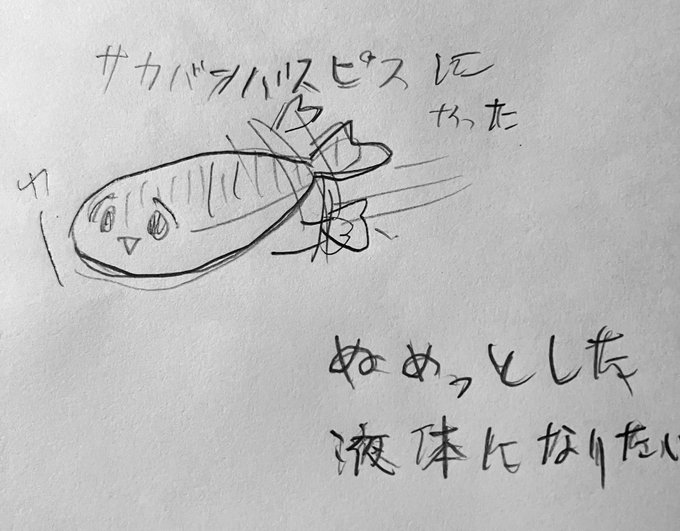 サカバンバスピスに
なった
わー
ぬめっとした
液体になりたい